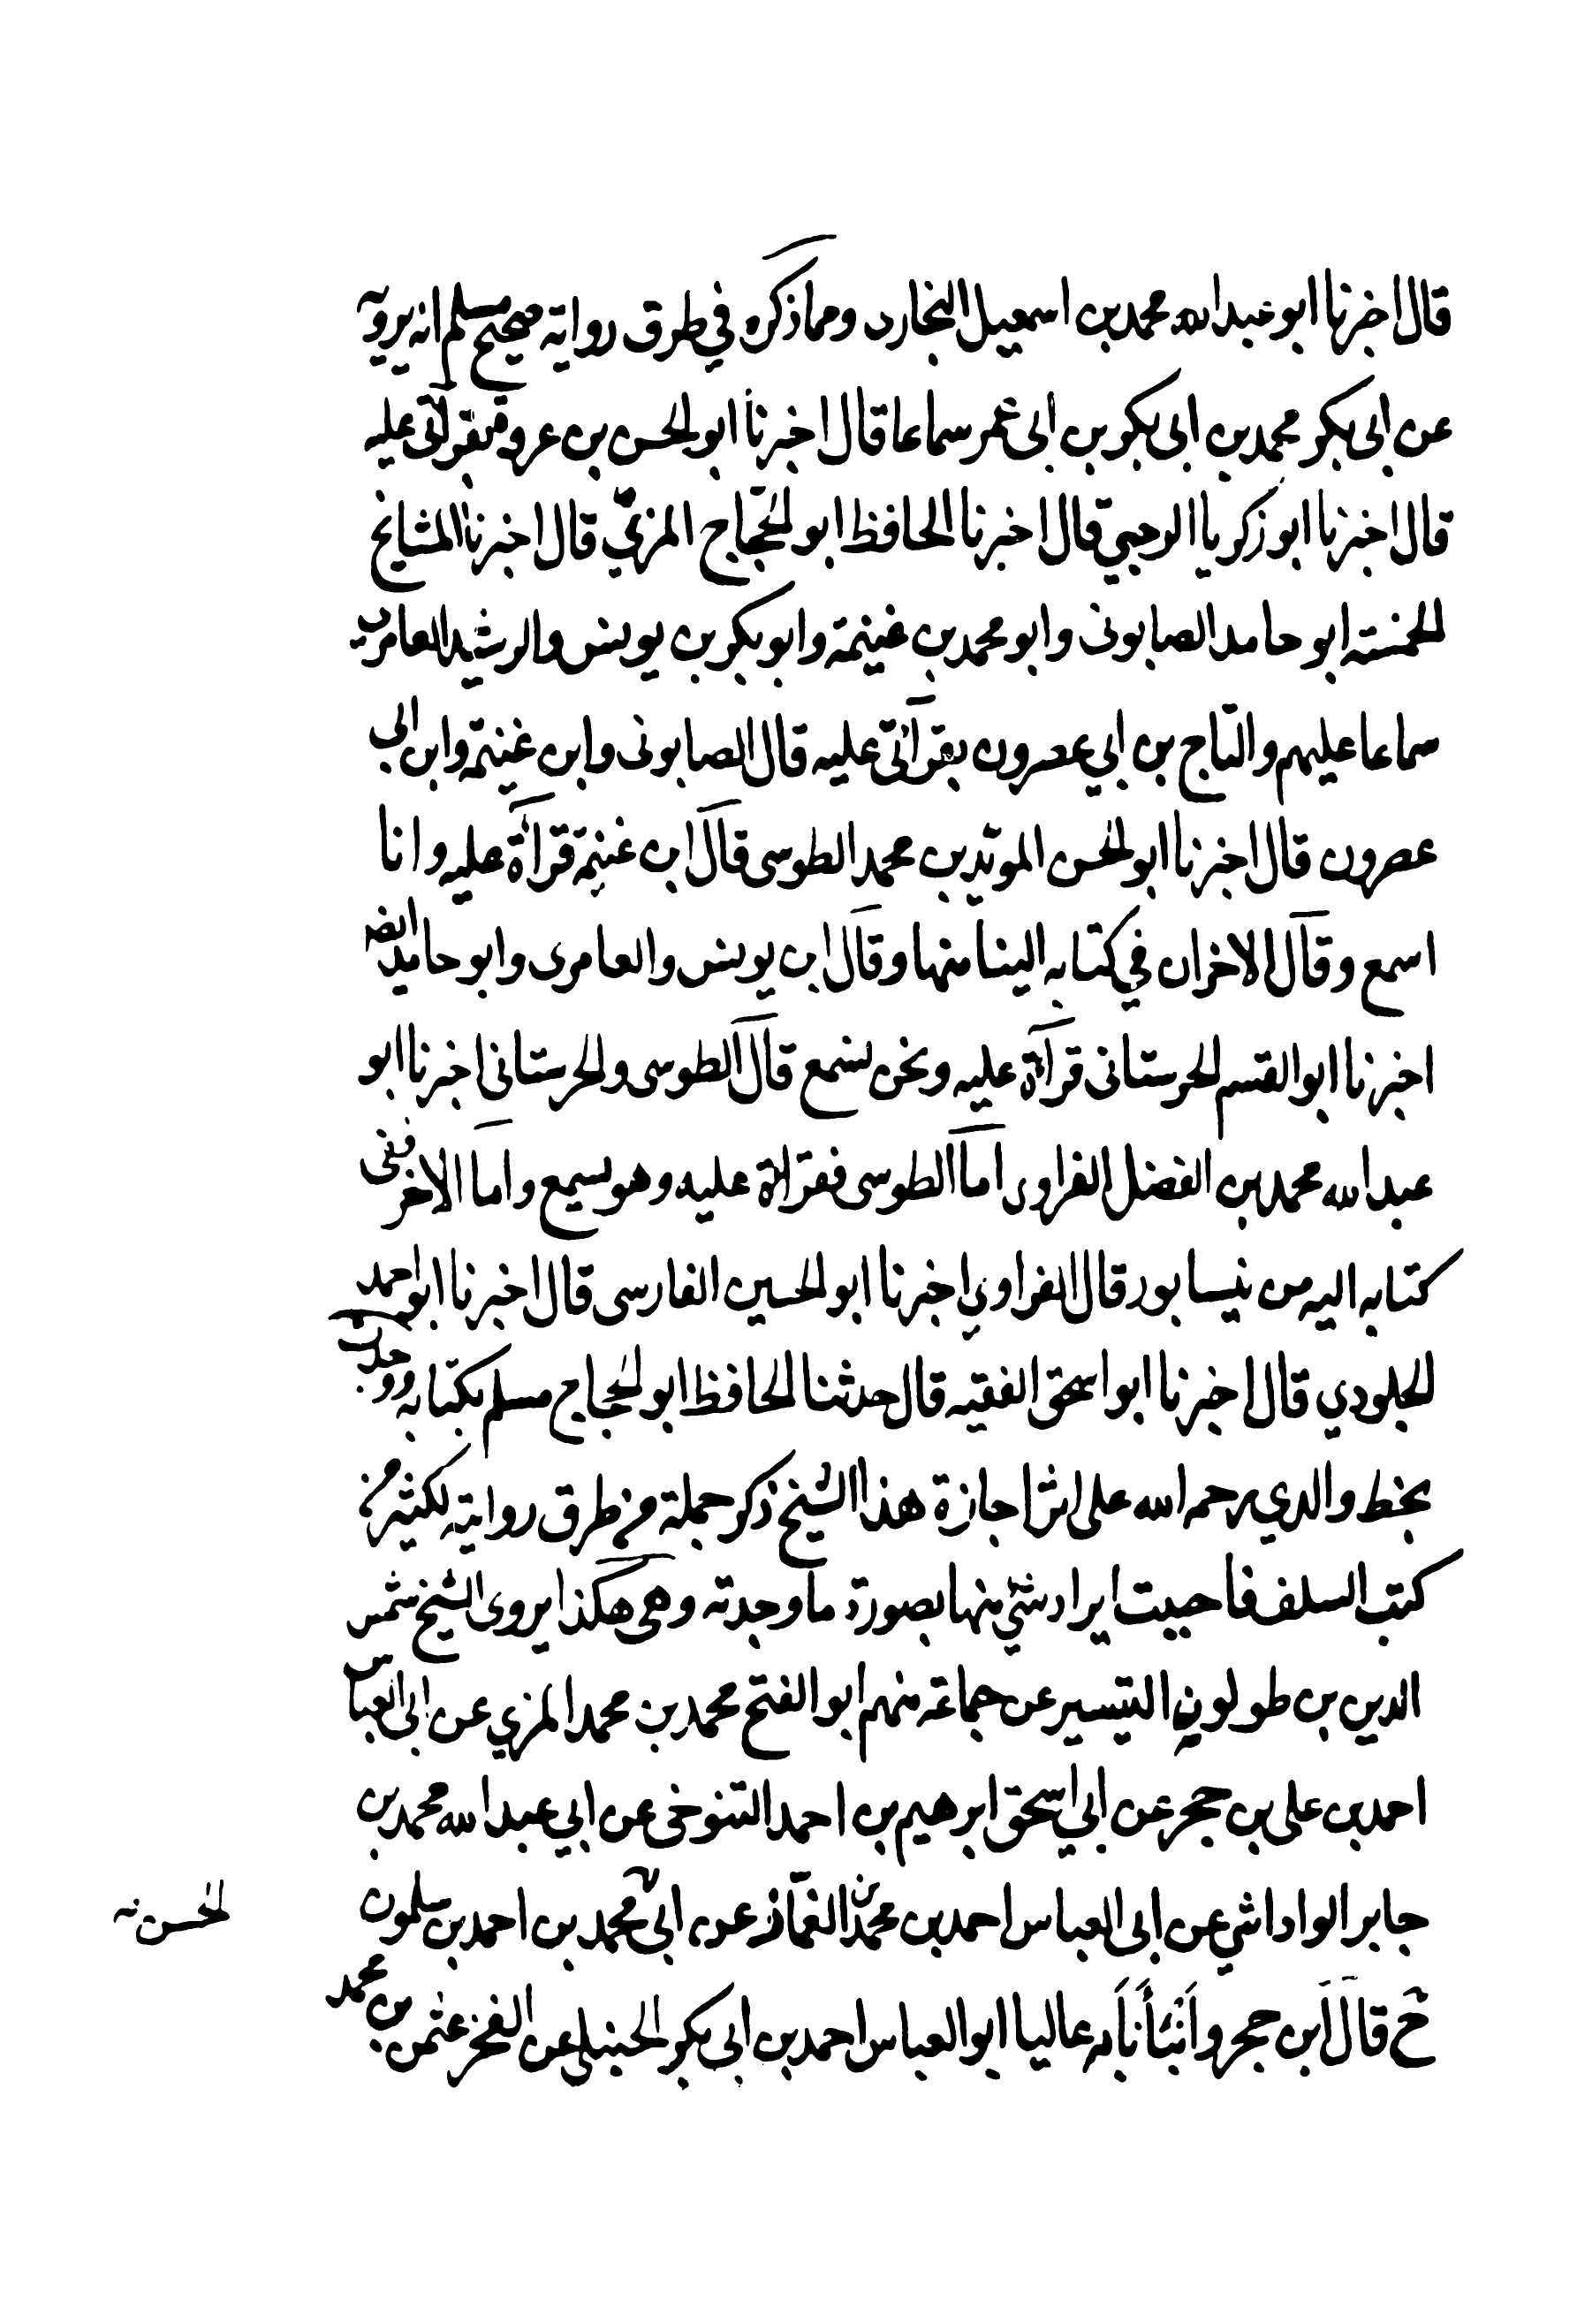 قال اخبرنا ابو عبد الله محمد بن اسمعيل البخارى ومما ذكره في طرق روايته صحيح مسلم انه يرويه
عن ابى بكر محمد بن ابى بكر بن ابى عمر سماعا قال اخبرنا ابو الحسن بن عروة بقرآتى عليه
قال اخبرنا ابو زكريا الرحبي قال اخبرنا الحافظ ابو الحجّاج المزيّ قال اخبرنا المشايخ
الخمسة ابو حامد الصابونى وابو محمد بن غنيمة وابو بكر بن يونس والرشيد العامرى
سماعا عليهم والتاج بن ابي عصرون بقرآتى عليه قال الصابونى وابن غنيمة وابن ابى
عصرون قال اخبرنا ابو الحسن المويّد بن محمد الطوسى قال ابن غنيمة قرآة عليه وانا
اسمع وقال الاخران في كتابه الينا منها وقال ابن يونس والعامرى وابو حامد ايضا
اخبرنا ابو القسم الحرستانى قرآة عليه ونحن نسمع قال الطوسى والحرستانى اخبرنا ابو
عبد الله محمد بن الفضل الفراوى اما الطوسى فقرآة عليه وهو يسمع واما الاخر ففى
كتابه اليه من نيسابور قال الفراوي اخبرنا ابو الحسين الفارسى قال اخبرنا ابو احمد
الجلودي قال اخبرنا ابو اسحق الفقيه قال حدثنا الحافظ ابو الحجاج مسلم بكتابه ووجدت
بخط والدي رحمه الله على اثر اجازة هذا الشيخ ذكر جملة من طرق روايته لكثير من
كتب السلف فاحببت ايراد شئ منها بصورة ما وجدته وهى هكذا يروى الشيخ شمس
الدين بن طولون التيسير عن جماعة منهم ابو الفتح محمد بن محمد المزي عن ابى العباس
احمد بن على بن حجر عن ابي اسحق ابرهيم بن احمد التنوخى عن ابي عبد الله محمد بن
جابر الواداشي عن ابى العباس احمد بن محمد بن الغمّاز عن ابى محمد بن احمد بن سلمون
ح قال ابن حجر وانبأنا به عاليا ابو العباس احمد بن ابى بكر الحنبلى عن الفخر عثمن بن محمد
الحسن